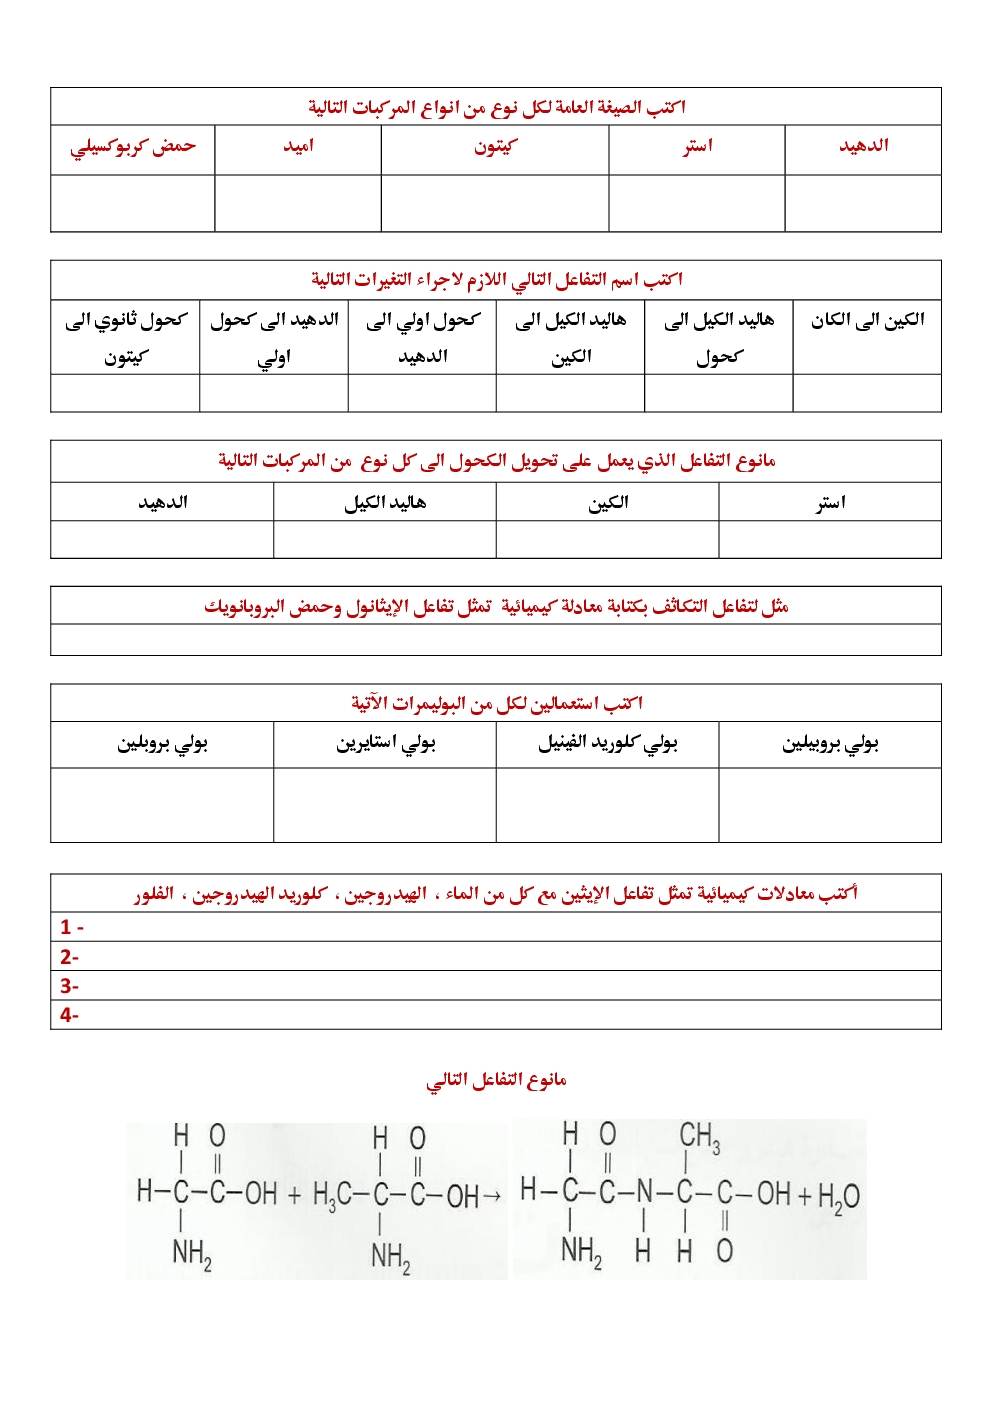 اكتب الصيغة العامة لكل نوع من انواع المركبات التالية
الدهيد استر كيتون اميد حمض كربوكسيلي
اكتب اسم التفاعل التالي اللازم لاجراء التغيرات التالية
الكين الى الكان هاليد الكيل الى هاليد الكيل الى كحول اولي الى الدهيد الى كحول كحول ثانوي الى
كحول الكين الدهيد اولي كيتون
مانوع التفاعل الذي يعمل على تحويل الكحول الى كل نوع من المركبات التالية
استر الكين هاليد الكيل الدهيد
مثل لتفاعل التكاثف بكتابة معادلة كيميائية تمثل تفاعل الإيثانول وحمض البروبانويك
اكتب استعمالين لكل من البوليمرات الآتية
بولي بروبيلين بولي كلوريد الفينيل بولي استايرين بولي بروبلين
أكتب معادلات كيميائية تمثل تفاعل الإيثين مع كل من الماء ، الهيدروجين ، كلوريد الهيدروجين ، الفلور
1 -
2-
3-
4-
مانوع التفاعل التالي
H O H O H O CH₃
H–C–C–OH + H₃C–C–C–OH → H–C–C–N–C–C–OH + H₂O
NH₂ NH₂ NH₂ H H O